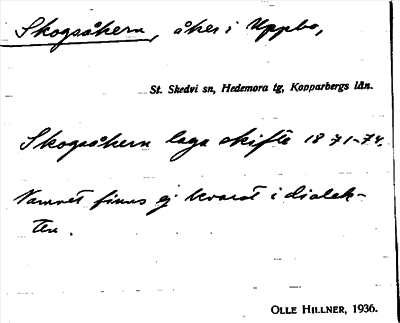 Skogsåkern, åker i Uppbo,
St. Skedvi sn, Hedemora tg, Kopparbergs län.
Skogsåkern laga skifte 1871-74.
Namnet finns ej kvar i dialek-
ten.
OLLE HILLNER, 1936.